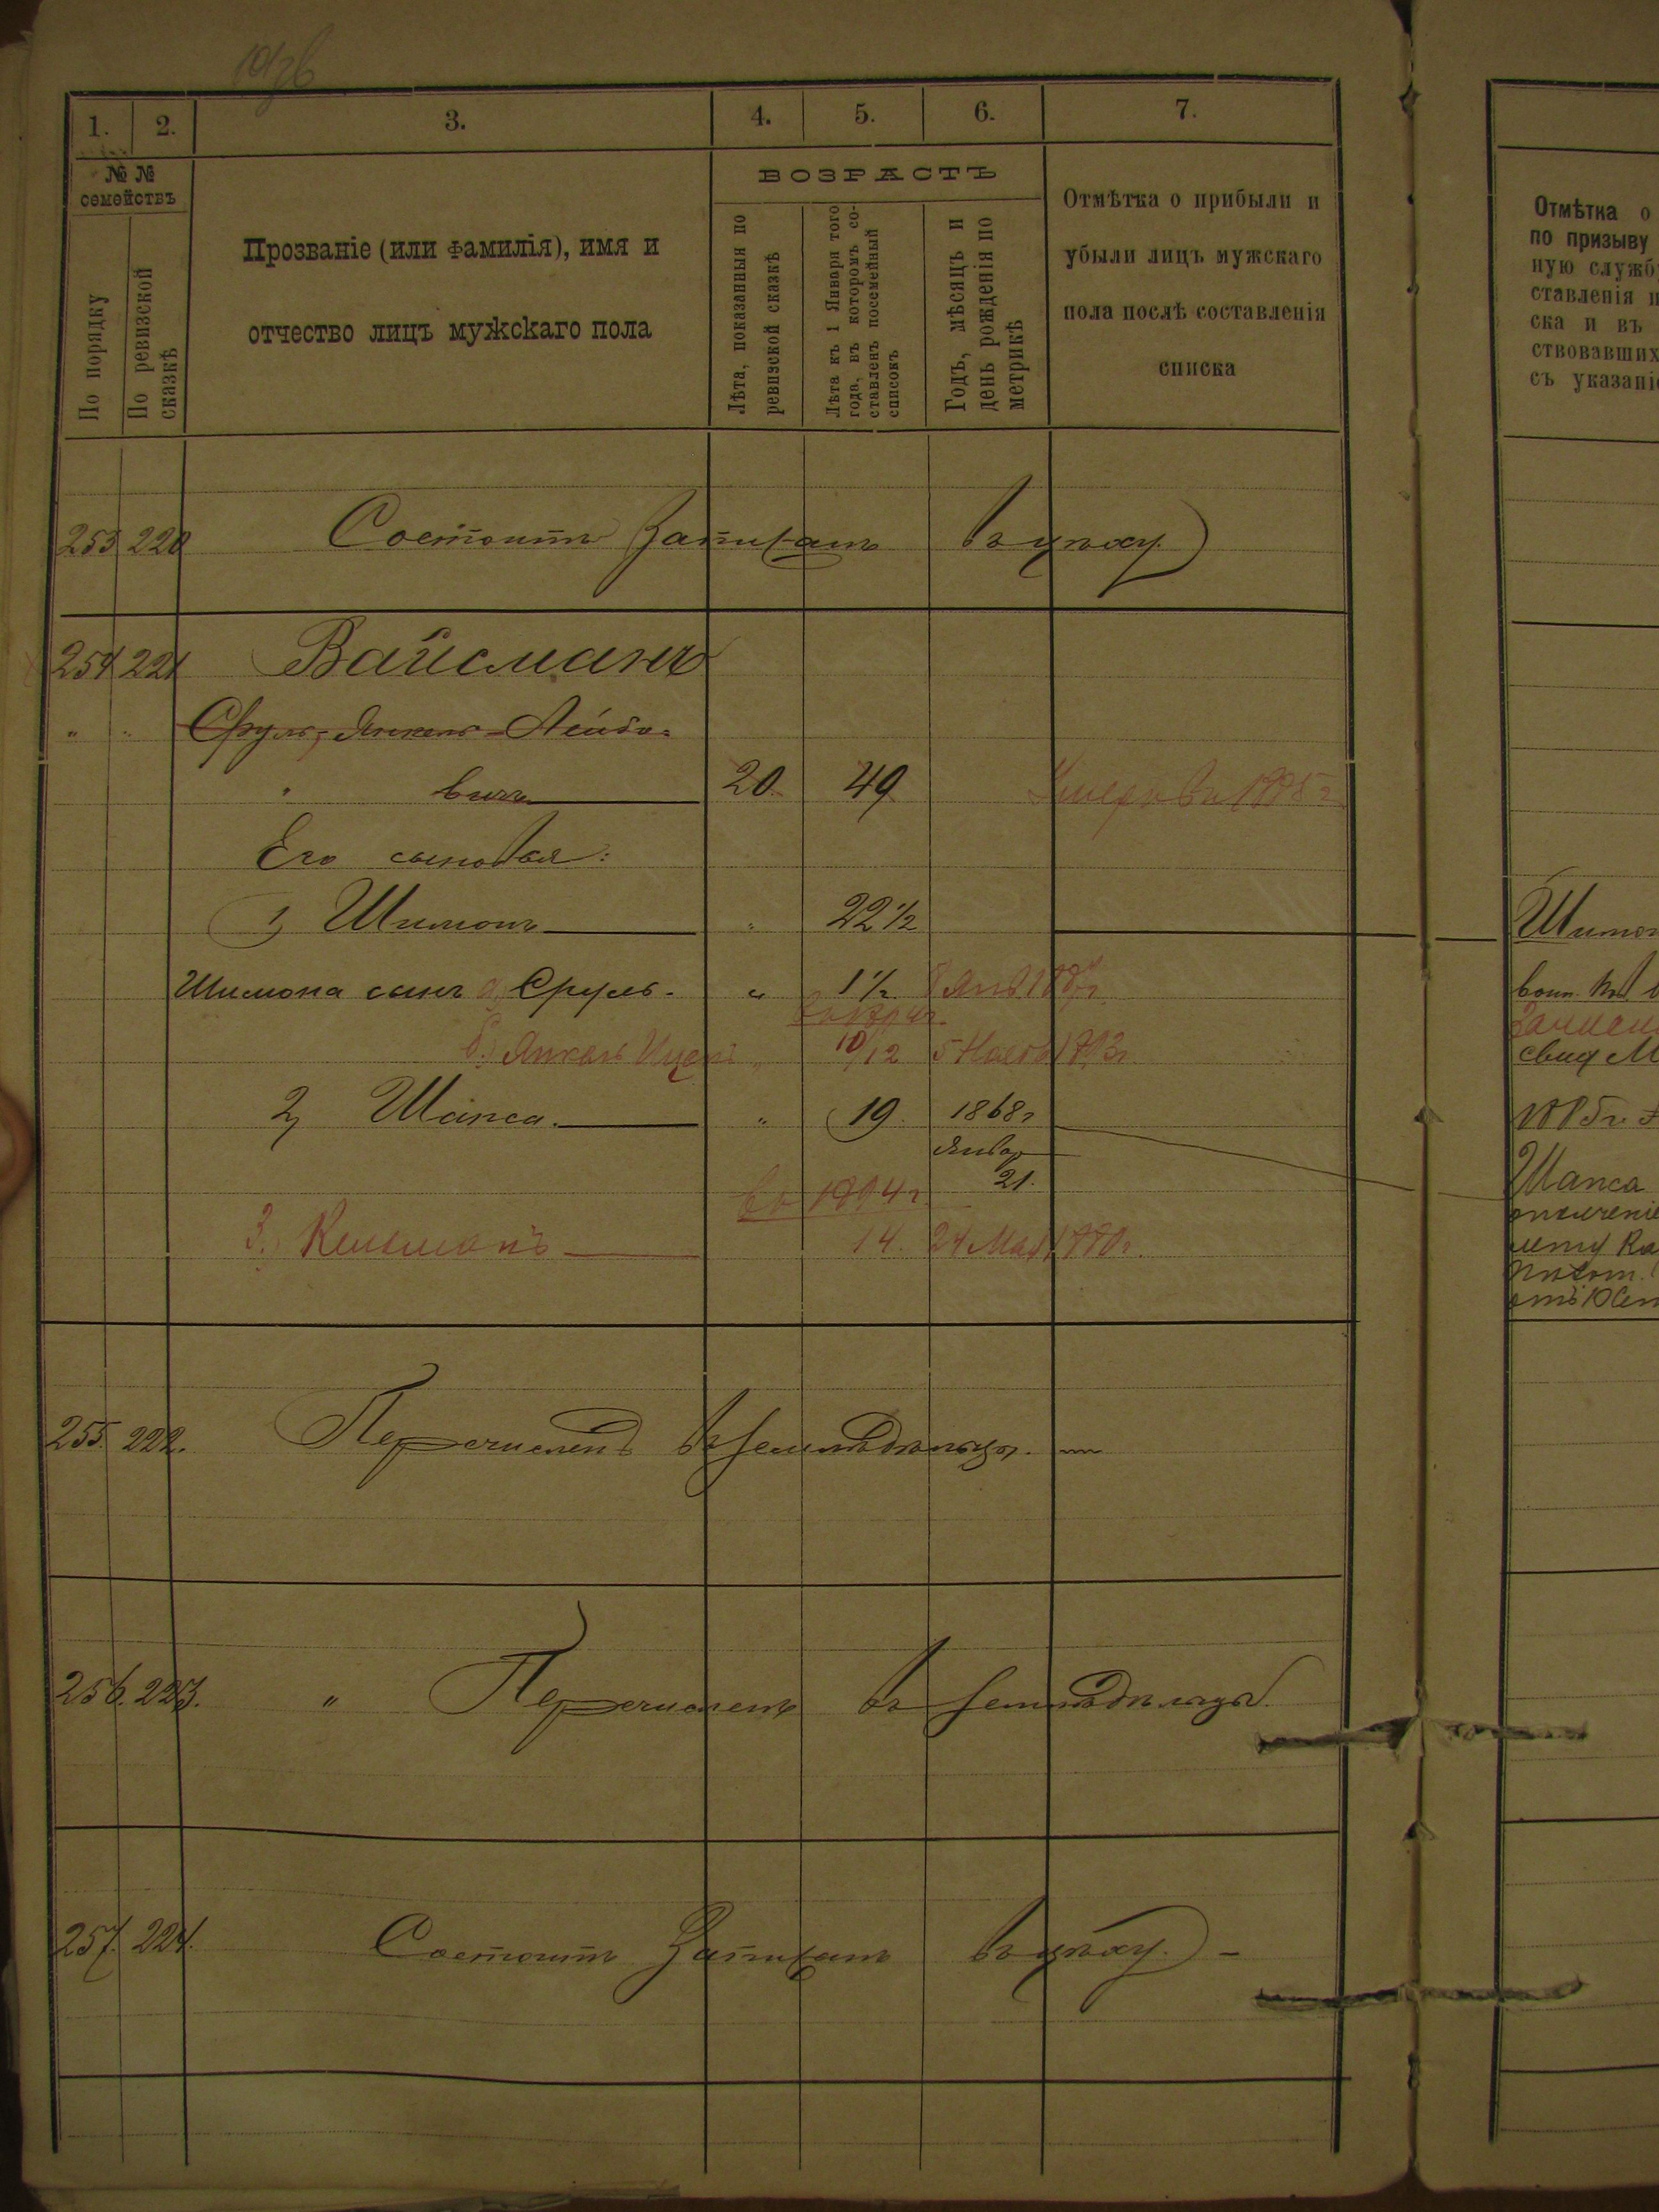 1. 2. 3. 4. 5. 6. 7.
№ №
семействъ
По порядку
По ревизской
сказкѣ
Прозваніе (или фамилія), имя и
отчество лицъ мужскаго пола
ВОЗРАСТЪ
Лѣта, показанныя по
ревизской сказкѣ
Лѣта къ 1 Января того
года, въ которомъ со-
ставленъ посемейный
списокъ
Годъ, мѣсяцъ и
день рожденія по
метрикѣ
Отмѣтка о прибыли и
убыли лицъ мужскаго
пола послѣ составленія
списка
Отмѣтка о
по призыву
ную служб
ставленія п
ска и въ
ствовавших
съ указані
253 220 Состоитъ Записанъ въ цѣху.
254 221 Вайсманъ
" " Сруль-Янкель Лейбо-
" вичъ 20 49 Умеръ въ 1885 г.
Его сыновья:
1) Шимонъ " 22 1/2
Шимон
Шимона сынъ а) Сруль " 1 1/2
воин
въ 1894 г.
б) Янкель 10/12 5 Нояб 1893 г.
свид
2) Шапса " 19 1868 г
Январ
21.
1885 г.
Шапса
ополчені
въ 1894 г.
3.) Кельманъ 14. 24 Мая 1880 г.
255. 222. Перечисленъ въ земледѣльцы.
256. 223. " Перечисленъ въ земледѣльцы.
257. 224. Состоитъ Записанъ въ цѣху. -